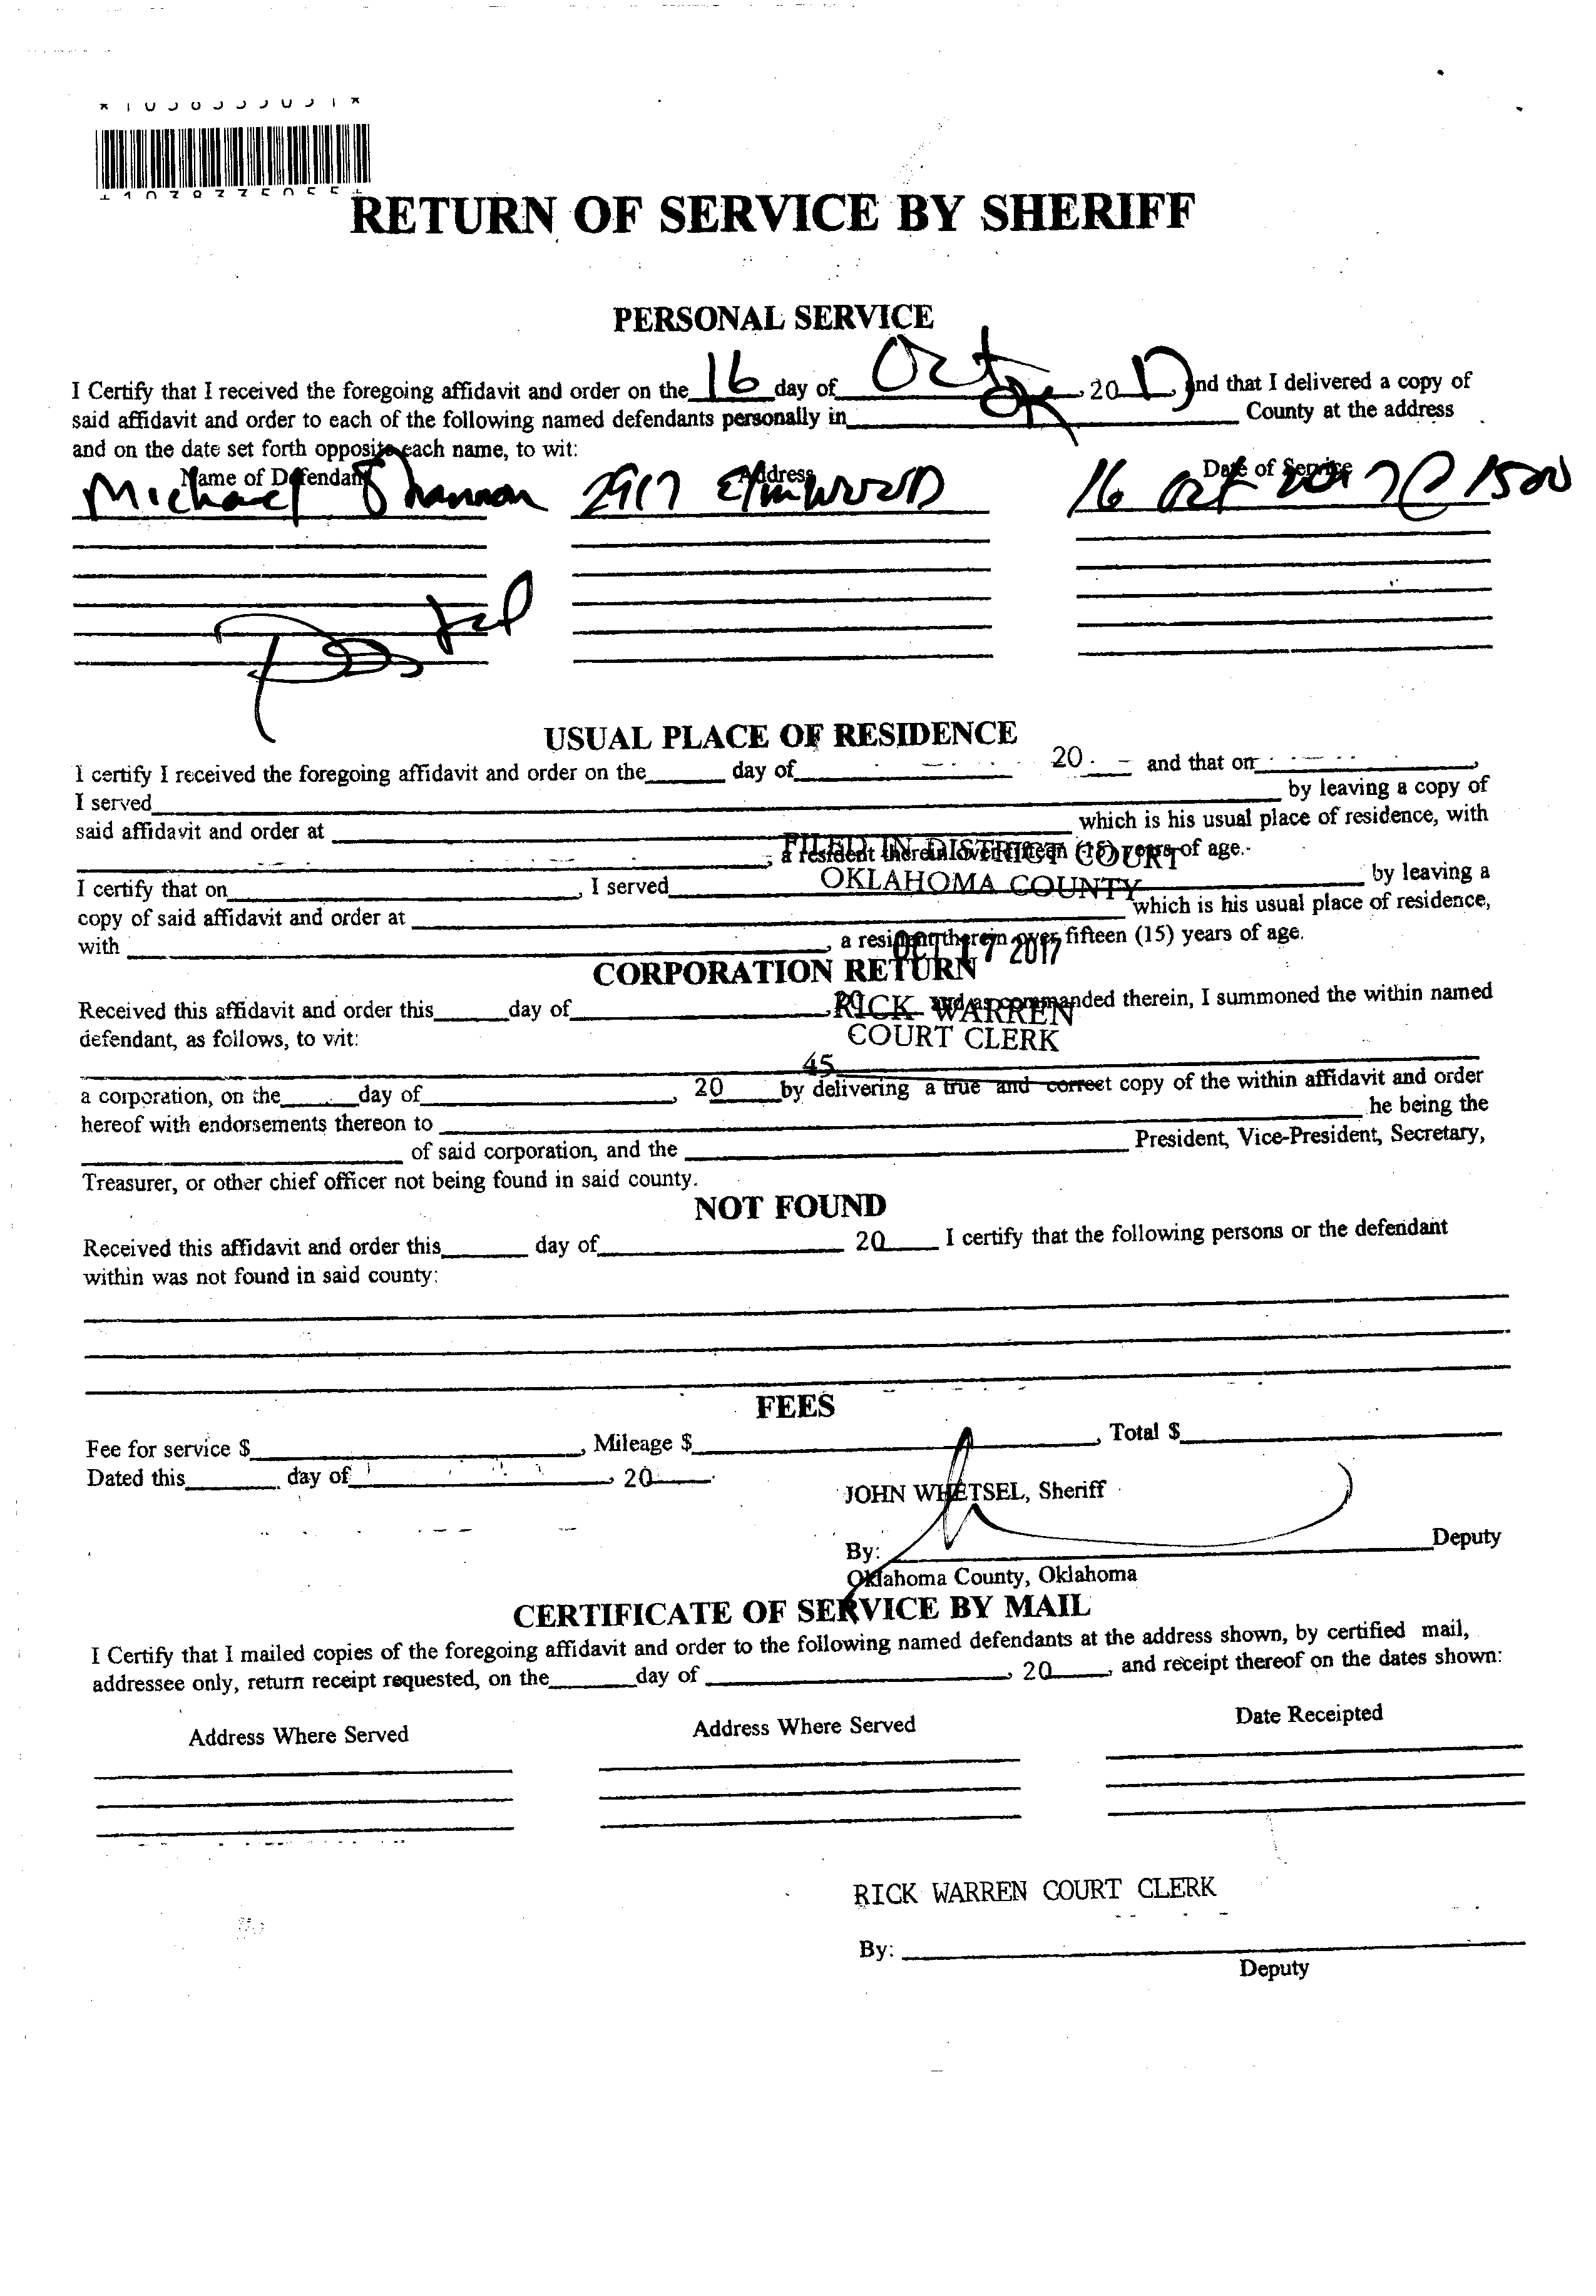 RETURN OF SERVICE BY SHERIFF
PERSONAL SERVICE
I Certify that I received the foregoing affidavit and order on the 16 day of Oct, 2017 and that I delivered a copy of
said affidavit and order to each of the following named defendants personally in OK County at the address
and on the date set forth opposite each name, to wit:
Name of Defendant Address Date of Service
Michael Shannon 2917 Elmwood 16 Oct 2017 @ 1500
Posted
USUAL PLACE OF RESIDENCE
I certify I received the foregoing affidavit and order on the day of 20 and that on ,
I served by leaving a copy of
said affidavit and order at which is his usual place of residence, with
, a resident therein over fifteen (15) years of age.
FILED IN DISTRICT COURT
OKLAHOMA COUNTY
I certify that on , I served by leaving a
copy of said affidavit and order at which is his usual place of residence,
with , a resident therein over fifteen (15) years of age.
OCT 17 2017
CORPORATION RETURN
Received this affidavit and order this day of , 20 and as commanded therein, I summoned the within named
RICK WARREN
COURT CLERK
defendant, as follows, to wit:
45
a corporation, on the day of , 20 by delivering a true and correct copy of the within affidavit and order
hereof with endorsements thereon to he being the
of said corporation, and the President, Vice-President, Secretary,
Treasurer, or other chief officer not being found in said county.
NOT FOUND
Received this affidavit and order this day of 20 I certify that the following persons or the defendant
within was not found in said county:
FEES
Fee for service $ , Mileage $ , Total $
Dated this day of , 20 .
JOHN WHETSEL, Sheriff
By: Deputy
Oklahoma County, Oklahoma
CERTIFICATE OF SERVICE BY MAIL
I Certify that I mailed copies of the foregoing affidavit and order to the following named defendants at the address shown, by certified mail,
addressee only, return receipt requested, on the day of , 20 , and receipt thereof on the dates shown:
Address Where Served Address Where Served Date Receipted
RICK WARREN COURT CLERK
By:
Deputy